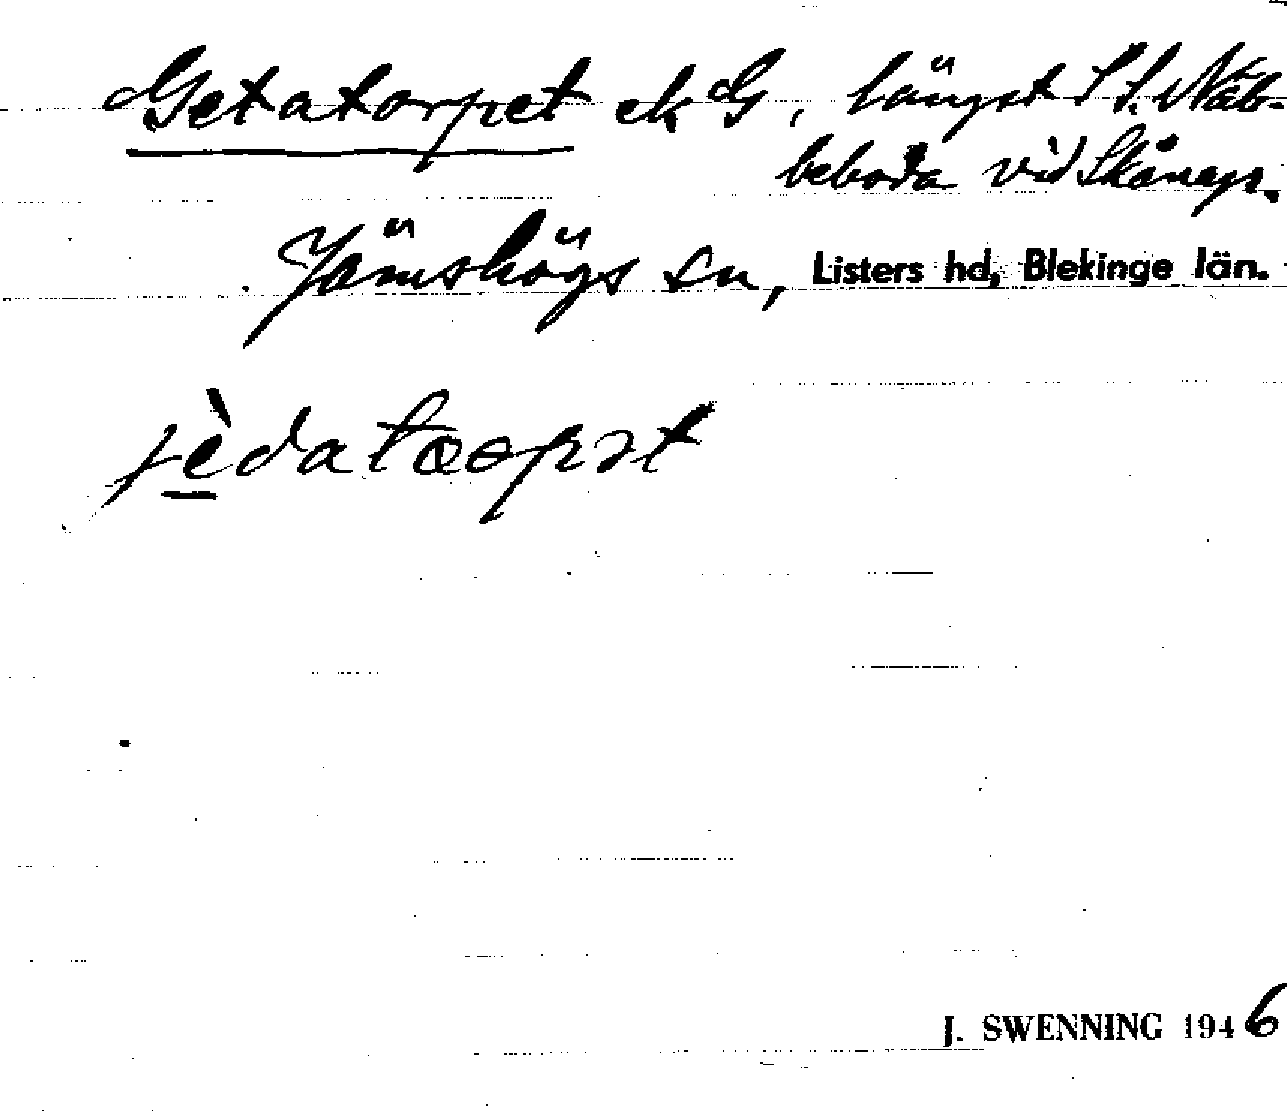 Getatorpet ek G, längst S i. Näb-
beboda vid Skånegr.
Jämshögs sn, Listers hd, Blekinge län.
jèdatɷepət
J. SWENNING 1946